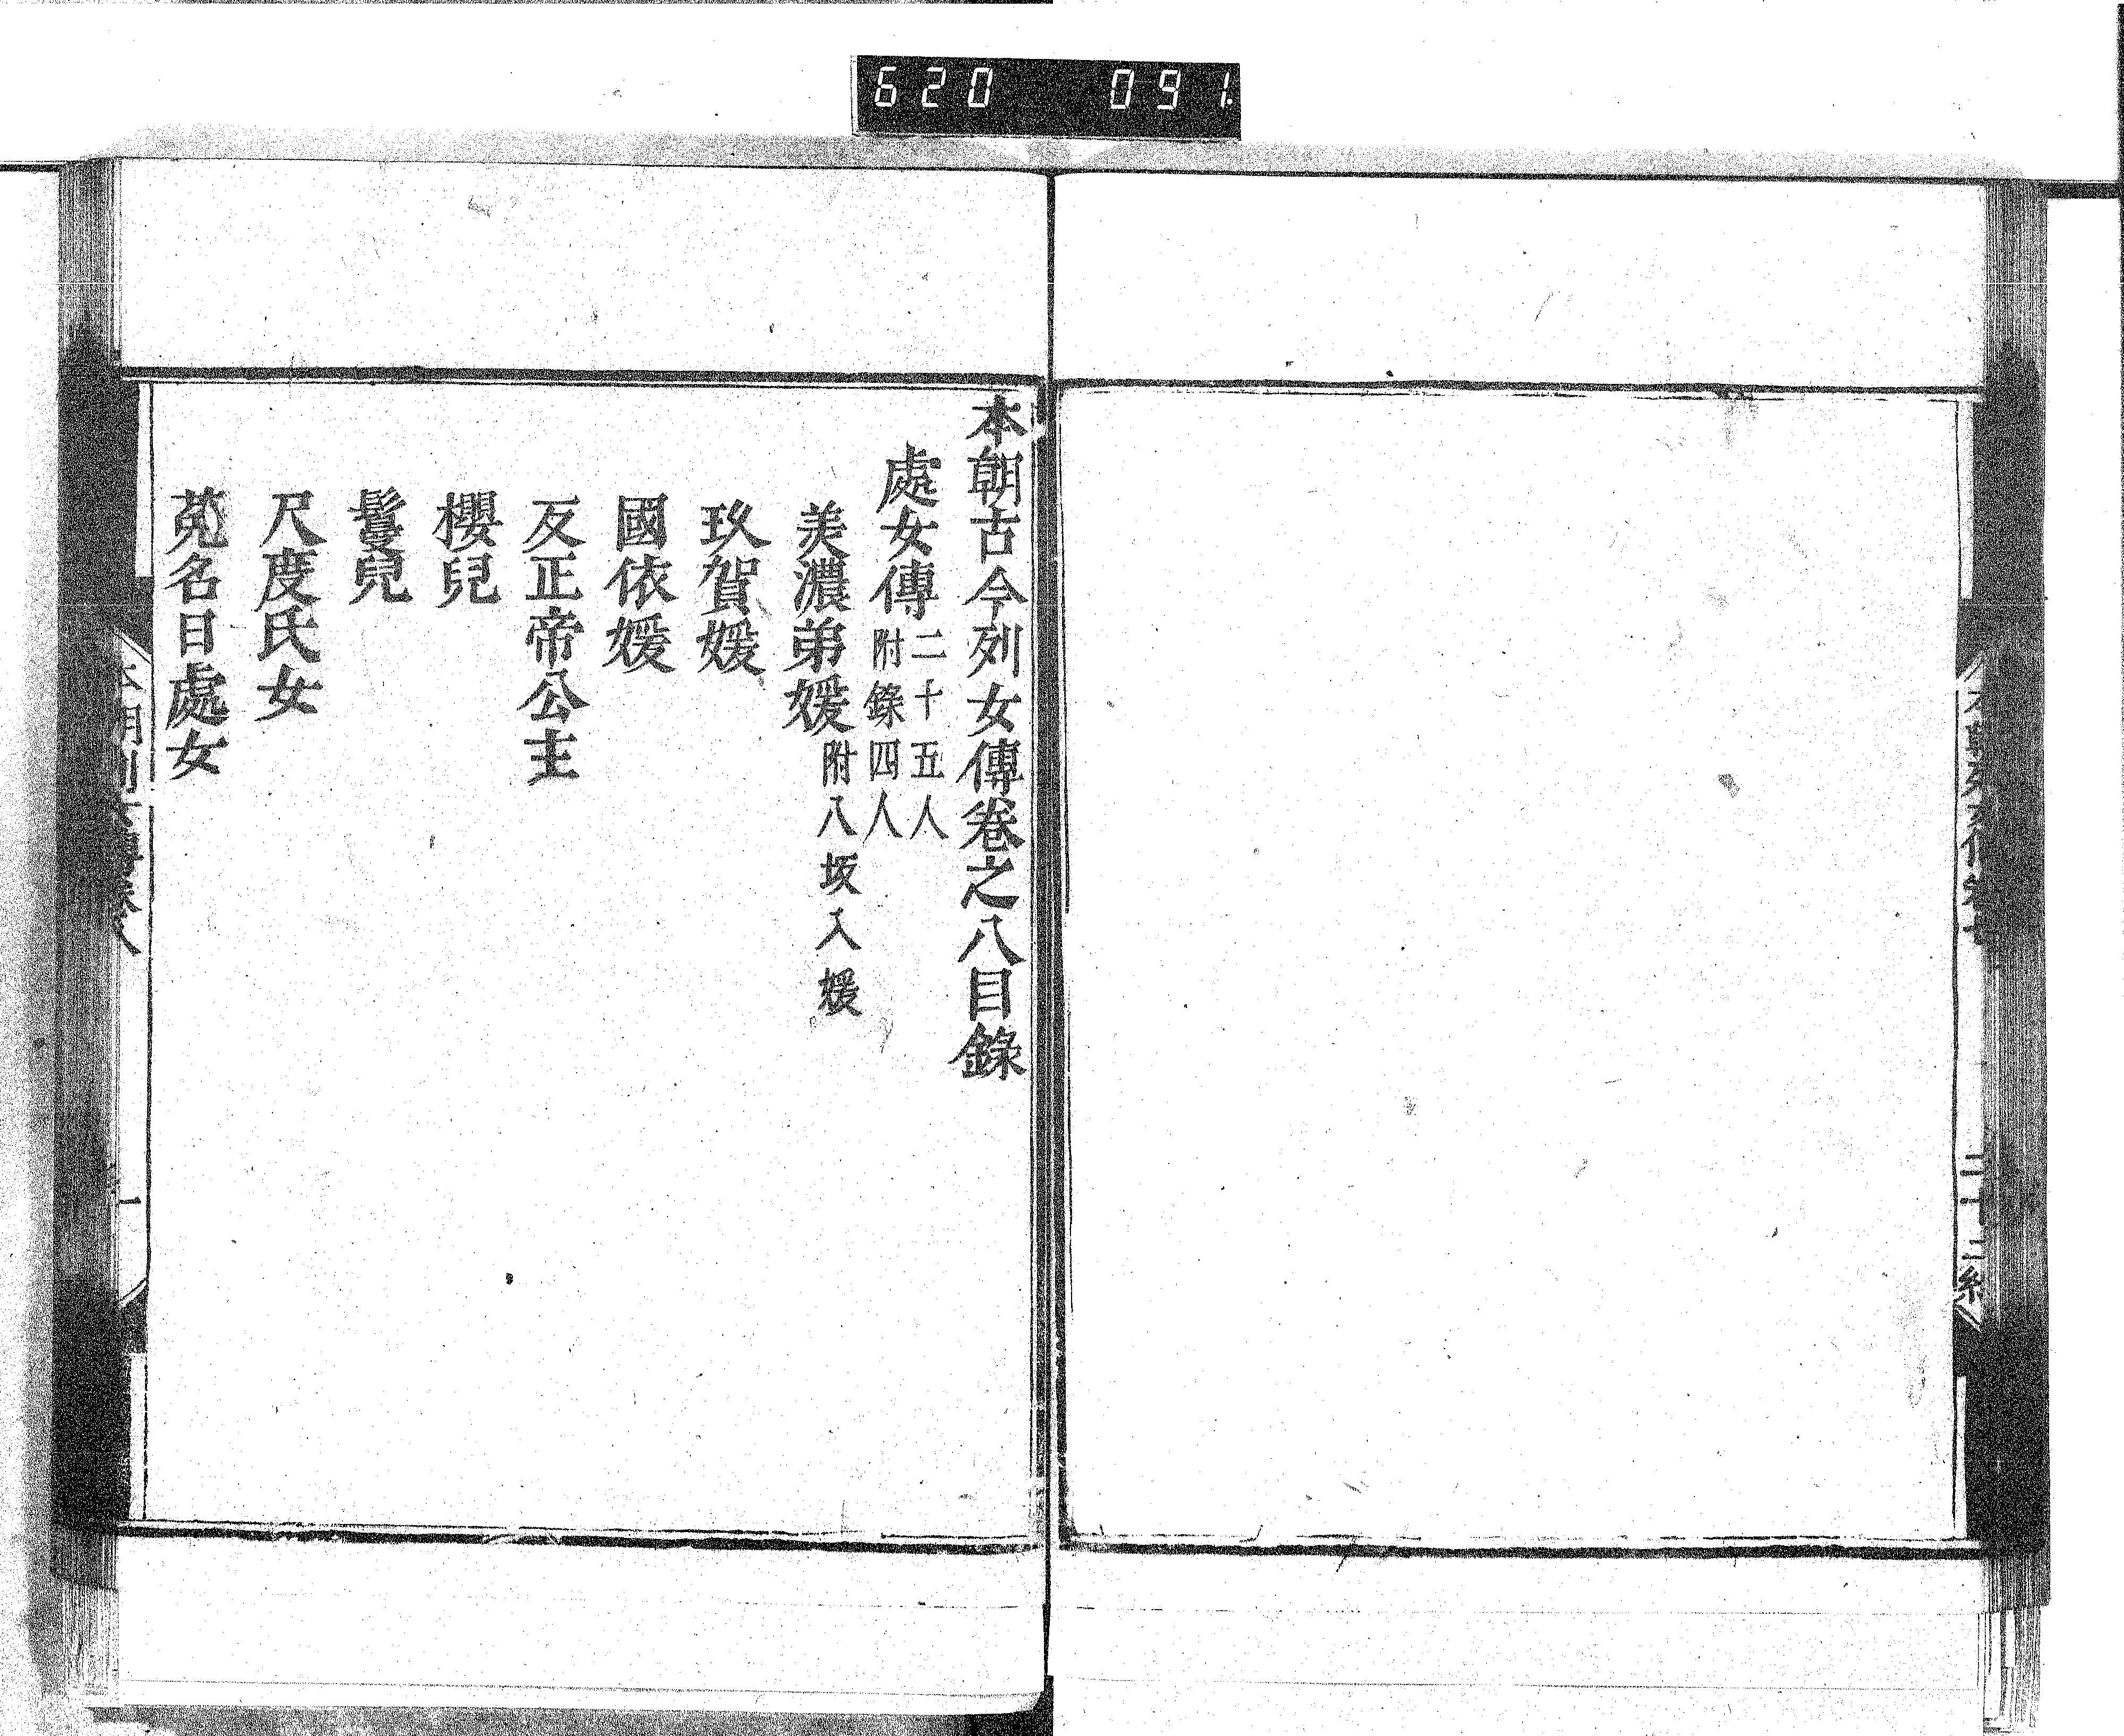 620 091
本朝古今列女傳卷之八目錄
處女傳 二十五人 附錄四人
美濃弟媛 附八坂入媛
玖賀媛
國依媛
反正帝公主
櫻兒
鬘兒
尺度氏女
菟名日處女